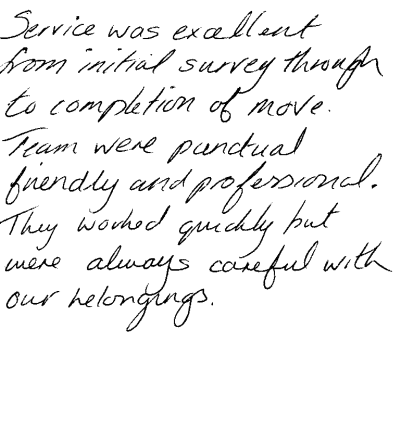 Service was excellent
from initial survey through
to completion of move.
Team were punctual
friendly and professional.
They worked quickly but
were always careful with
our belongings.